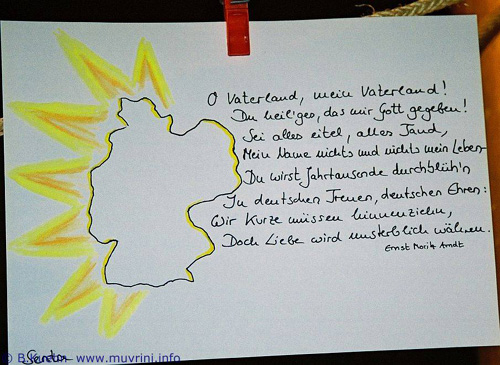 O Vaterland, mein Vaterland!
Du heil'ges, das mir Gott gegeben!
Sei alles eitel, alles Tand,
Mein Name nichts und nichts mein Leben
Du wirst Jahrtausende durchblüh'n
In deutschen Treuen, deutschen Ehren:
Wir Kurze müssen hinnenziehn,
Doch Liebe wird unsterblich währen.
Ernst Moritz Arndt
© B. www.muvrini.info